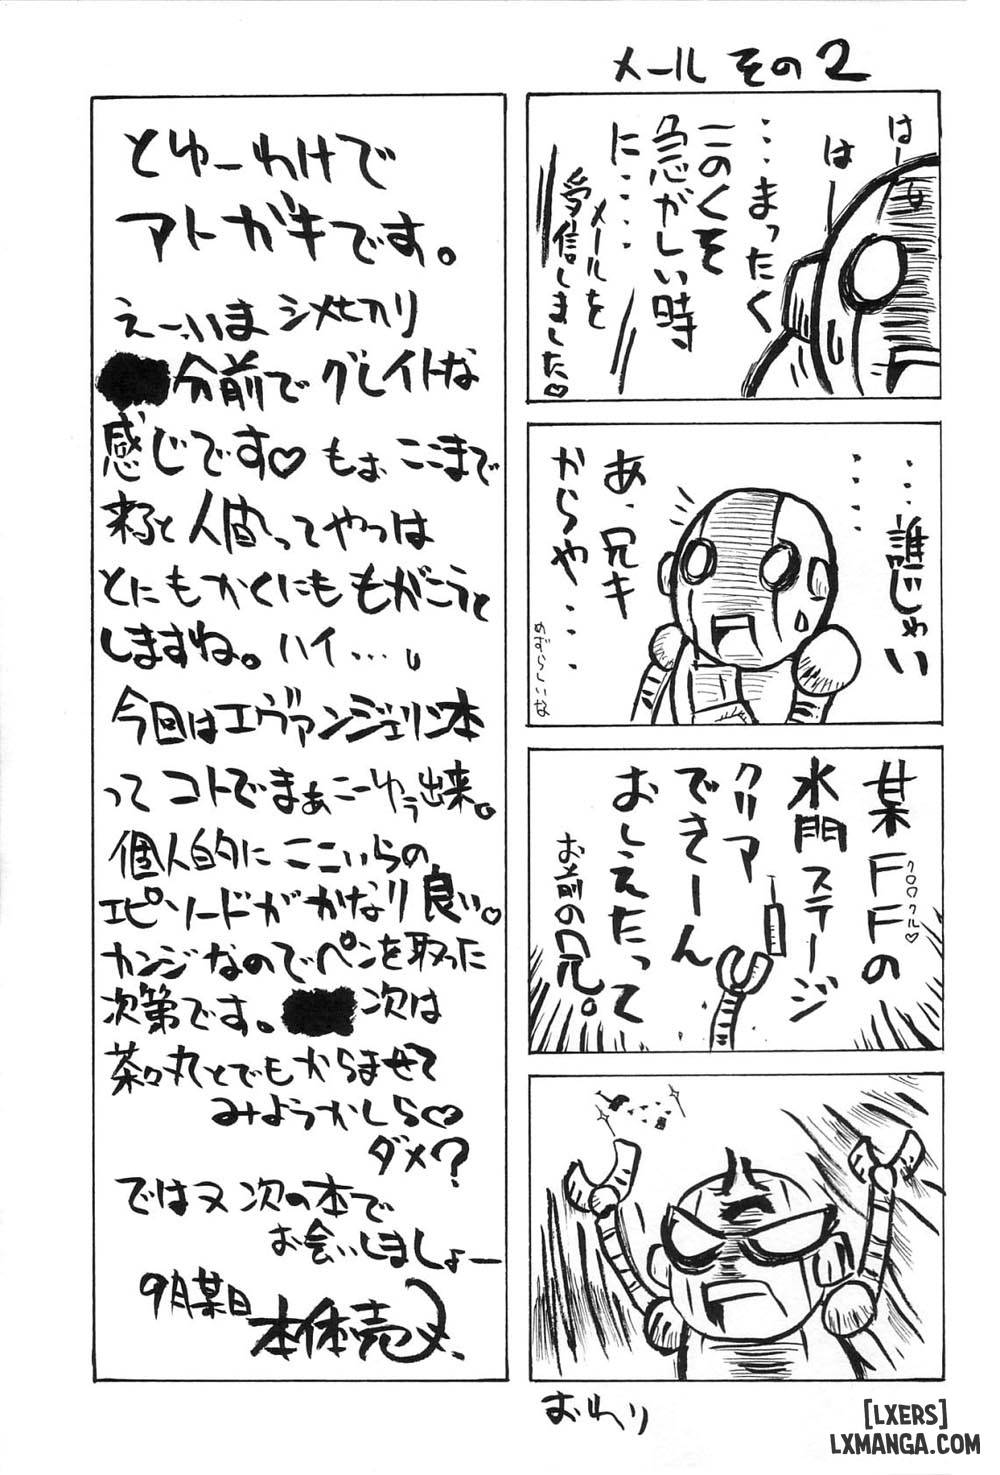 メール その2
はー
はー
…まったく
このくそ
急がしい時
に‥‥
メールを
受信しました♡
‥‥
…誰じゃい
あ、兄キ
からや‥‥
めずらしいな
某FFの
クロウクル♡
水門ステージ
クリア
できーん
おしえたって
お前の兄。
おわり
とゆーわけで
アトガキです。
えーっいまシメキリ
分前でグレイトな
感じです♡もぉここまで
来ると人間ってやつは
とにもかくにももがこうと
しますね。ハイ…。
今回はエヴァンジェリン本
ってコトでまぁこーゆう出来。
個人的にここいらの
エピソードがかなり良い。
カンジなのでペンを取った
次第です。次は
茶々丸とでもからませて
みようかしら♡
ダメ?
ではヌ次の本で
お会いしましょー
9月某日
本体売
[LXERS]
LXMANGA.COM